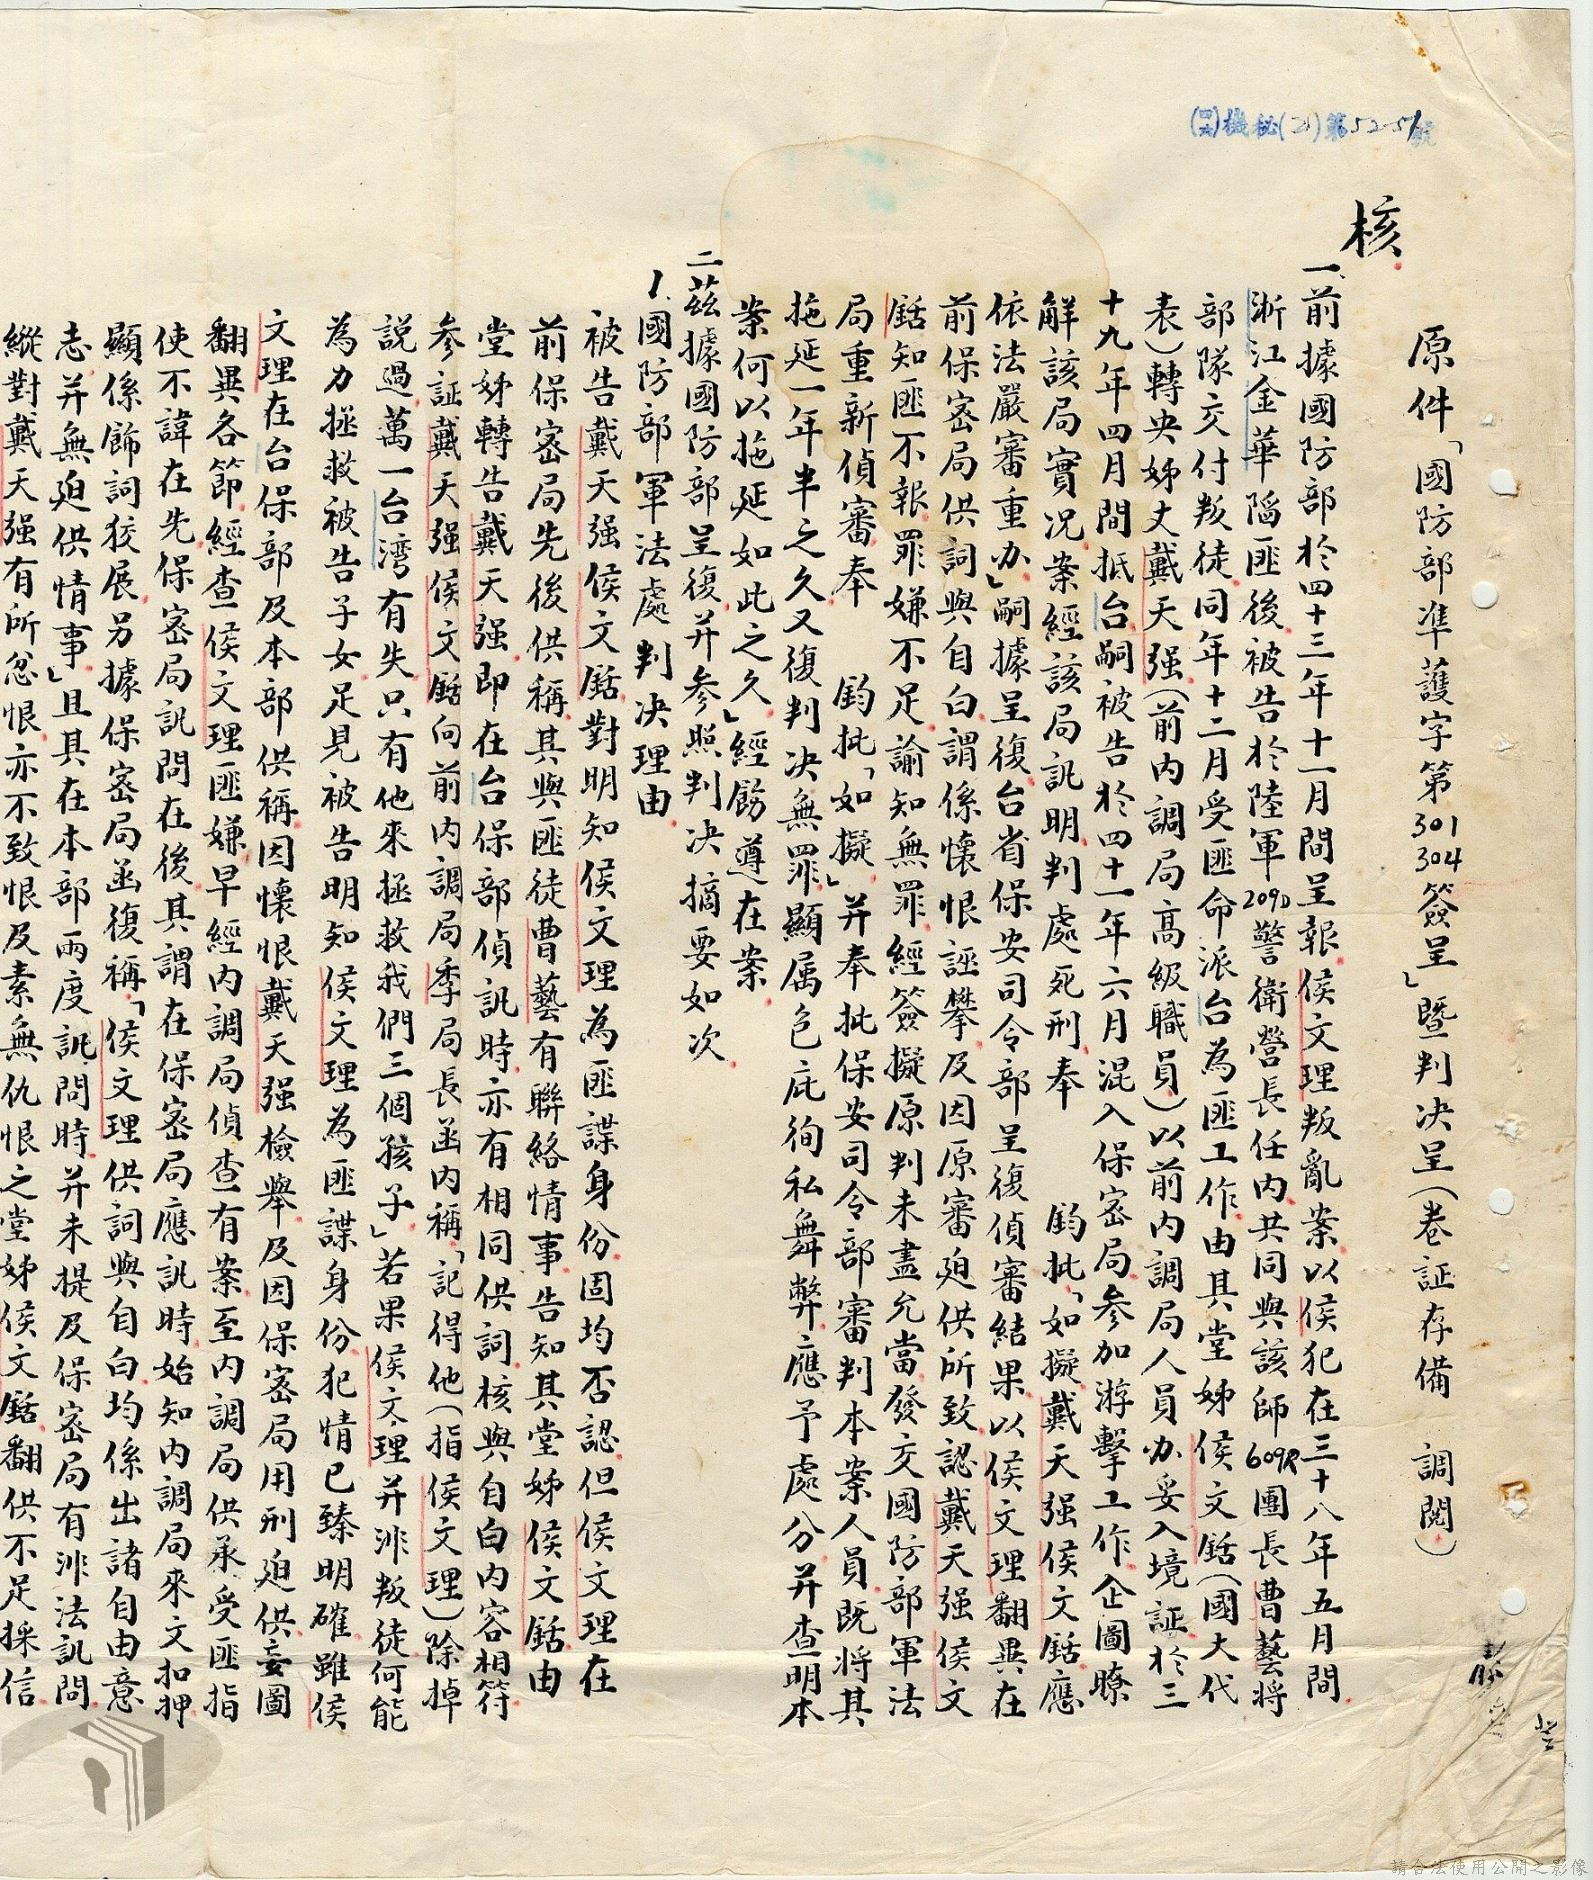 (四六)機秘(乙)第52-51號
核
原件「國防部準護字第301 304簽呈」暨判決呈(卷証存備 調閱)
一、前據國防部於四十三年十一月間呈報侯文理叛亂案以侯犯在三十八年五月間
浙江金華陷匪後被告於陸軍209D警衛營長任內共同與該師609R團長曹藝將
部隊交付叛徒同年十二月受匪命派台為匪工作由其堂姊侯文銛(國大代
表)轉央姊丈戴天强(前內調局高級職員)以前內調局人員办妥入境証於三
十九年四月間抵台嗣被告於四十一年六月混入保密局參加游擊工作企圖瞭
解該局實況案經該局訊明判處死刑奉 鈞批「如擬戴天强侯文銛應
依法嚴審重办」嗣據呈復台省保安司令部呈復偵審結果以侯文理翻異在
前保密局供詞與自白謂係懷恨誣攀及因原審廹供所致認戴天强侯文
銛知匪不報罪嫌不足諭知無罪經簽擬原判未盡允當發交國防部軍法
局重新偵審奉 鈞批「如擬」并奉批保安司令部審判本案人員既將其
拖延一年半之久又復判決無罪顯属包庇徇私舞弊應予處分并查明本
案何以拖延如此之久」經飭遵在案
二茲據國防部呈復并參照判決摘要如次
1.國防部軍法處判決理由
被告戴天强侯文銛對明知侯文理為匪諜身份固均否認但侯文理在
前保密局先後供稱其與匪徒曹藝有聯絡情事告知其堂姊侯文銛由
堂姊轉告戴天强即在台保部偵訊時亦有相同供詞核與自白內容相符
參証戴天强侯文銛向前內調局季局長函內稱「記得他(指侯文理)除掉
說過萬一台灣有失只有他來拯救我們三個孩子」若果侯文理并非叛徒何能
為力拯救被告子女足見被告明知侯文理為匪諜身份犯情已臻明確雖侯
文理在台保部及本部供稱因懷恨戴天强檢舉及因保密局用刑廹供妄圖
翻異各節經查侯文理匪嫌早經內調局偵查有案至內調局供承受匪指
使不諱在先保密局訊問在後其謂在保密局應訊時始知內調局來文扣押
顯係飾詞狡展另據保密局函復稱「侯文理供詞與自白均係出諸自由意
志并無廹供情事」且其在本部兩度訊問時并未提及保密局有非法訊問
縱對戴天强有所忿恨亦不致恨及素無仇恨之堂姊侯文銛翻供不足採信
請合法使用公開之影像